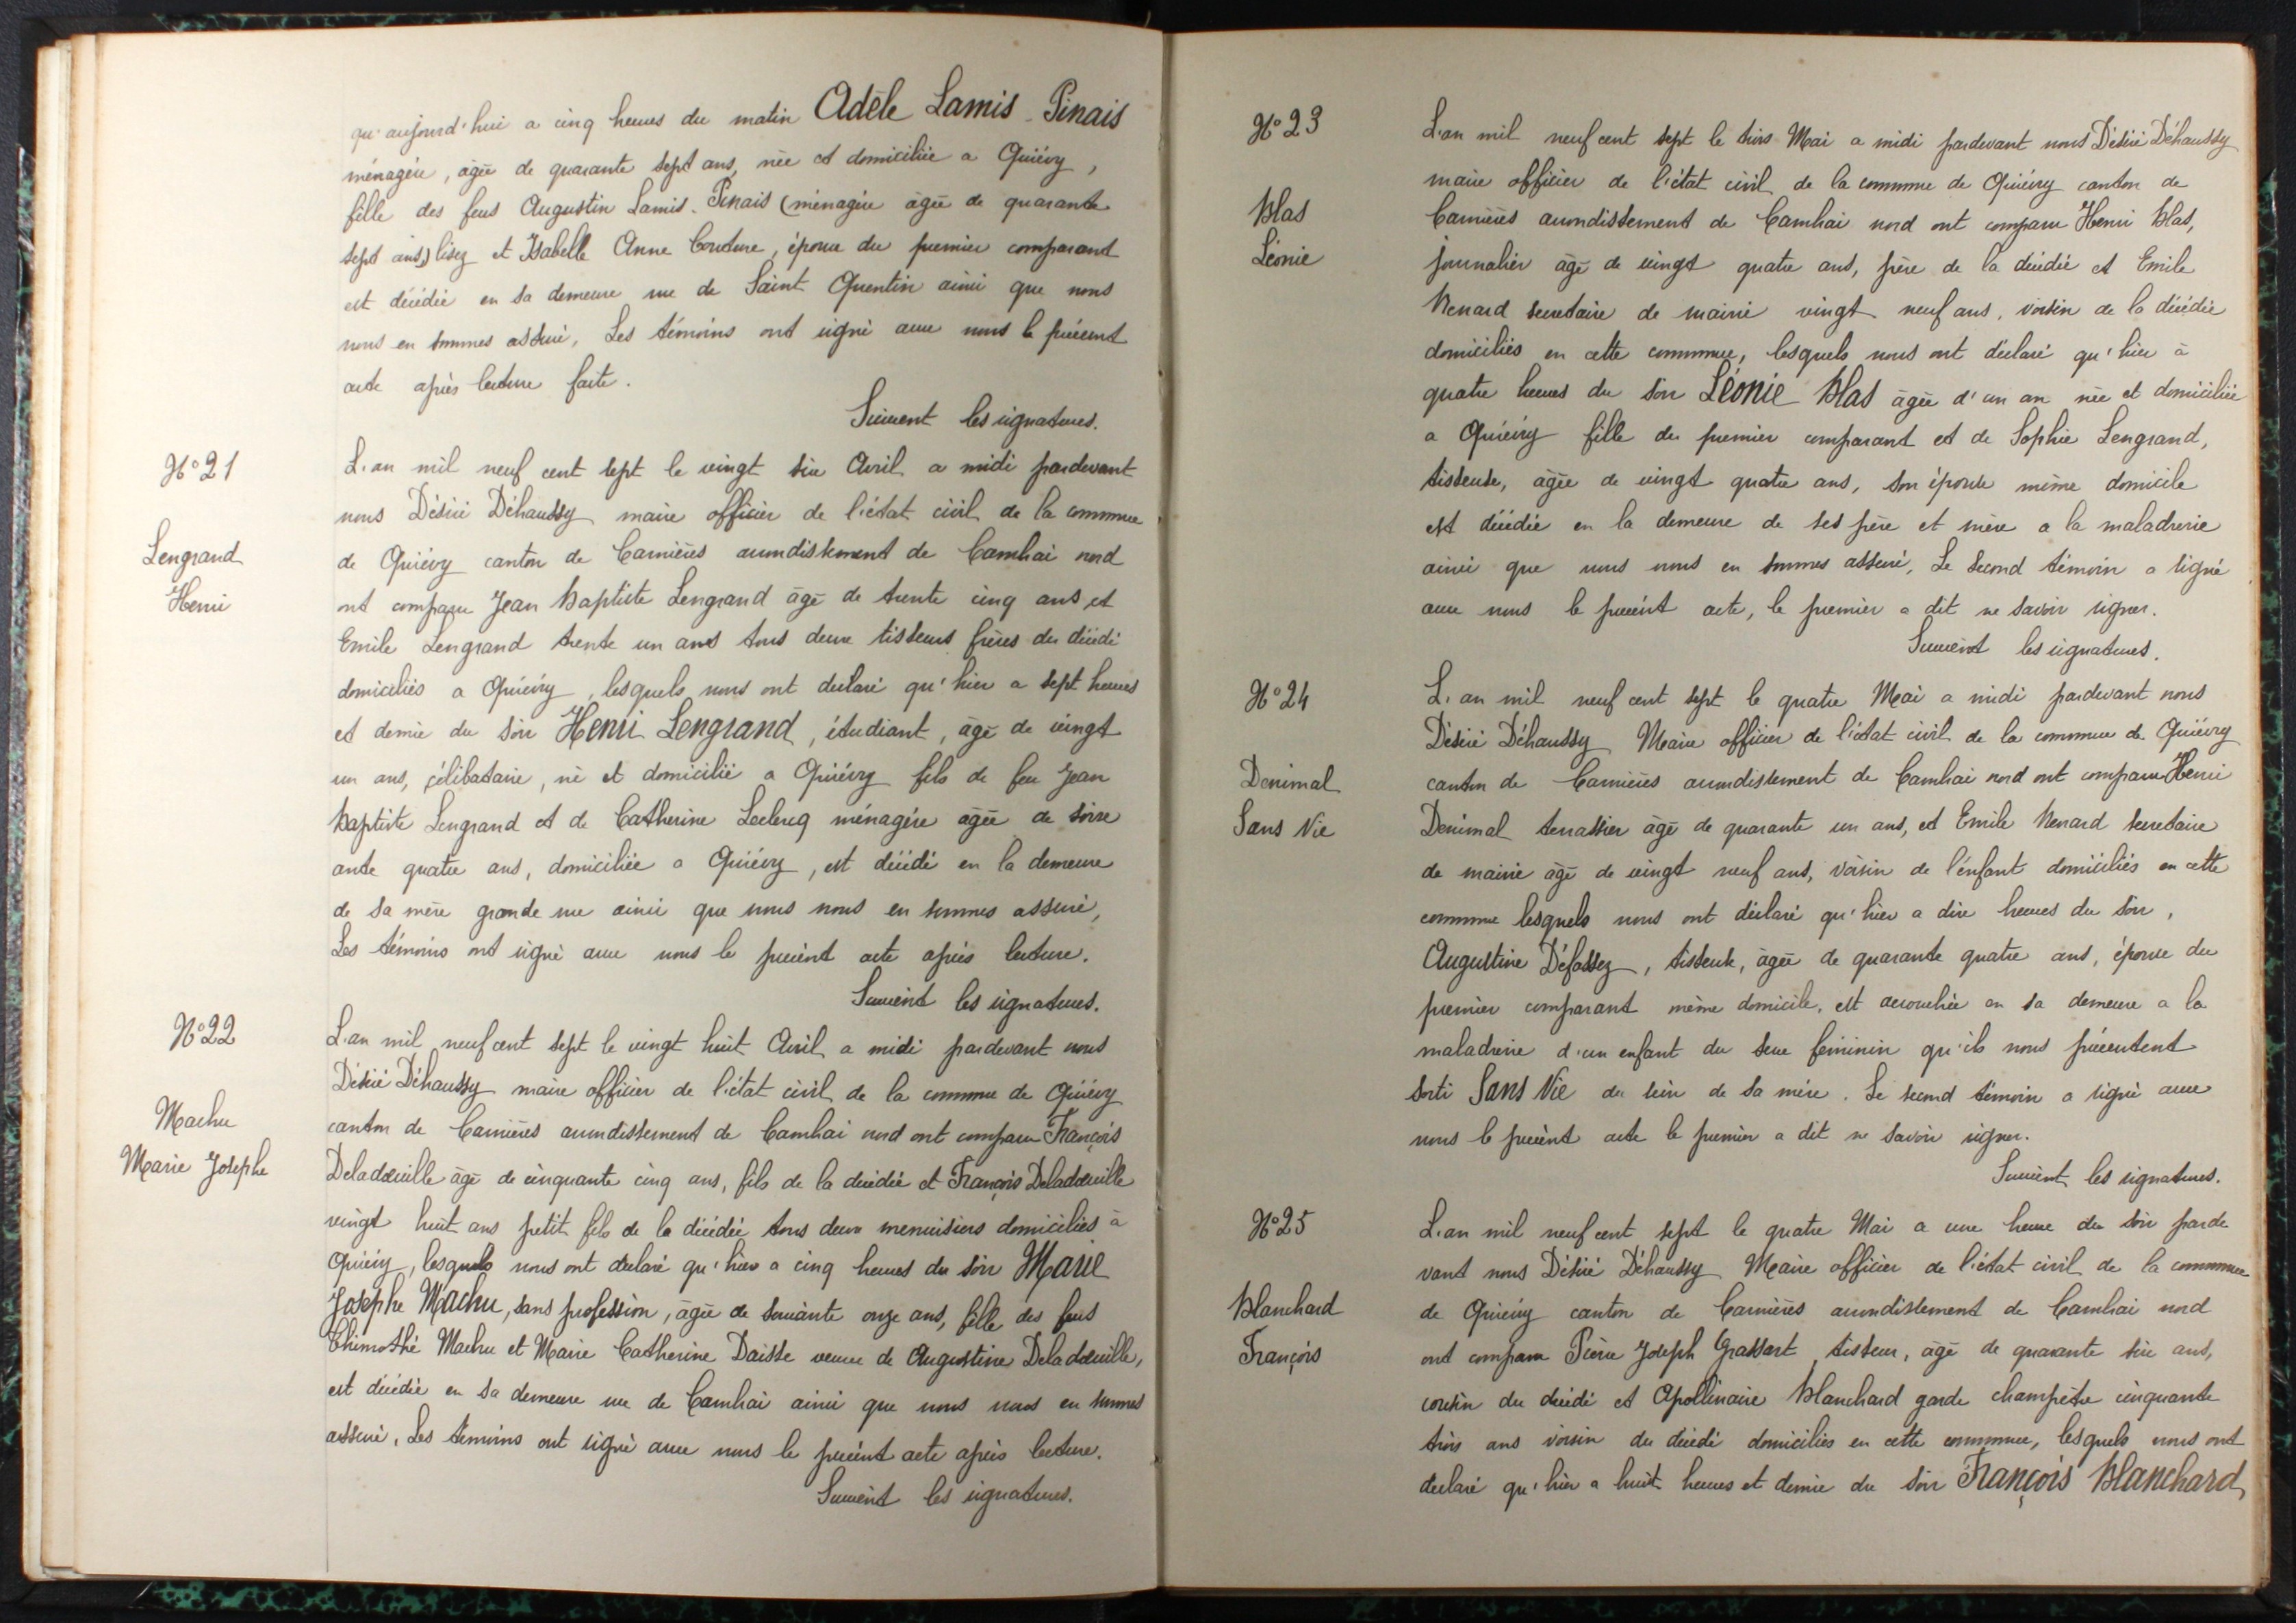 qu'aujourd'hui a cinq heures du matin Adèle Lamis-Pinais
ménagère, âgée de quarante sept ans, née et domiciliée a Quiévy,
fille des feus Augustin Lamis-Pinais (ménagère âgée de quarante
sept ans,) lisez et Isabelle Anne Couture, épouse du premier comparant
est décédée en sa demeure rue de Saint Quentin ainsi que nous
nous en sommes assuré, Les témoins ont signé avec nous le présent
acte après lecture faite.
Suivent les signatures.
N° 21
Lengrand
Henri
L'an mil neuf cent sept le vingt six Avril a midi pardevant
nous Désiré Déhaussy maire officier de l'état civil de la commune
de Quiévy canton de Carnières arrondissement de Cambrai nord
ont comparu Jean Baptiste Lengrand âgé de trente cinq ans et
Emile Lengrand trente un ans tous deux tisseurs frères du décédé
domiciliés a Quiévy, lesquels nous ont déclaré qu'hier a sept heures
et demie du soir Henri Lengrand, étudiant, âgé de vingt
un ans, célibataire, né et domicilié a Quiévy fils de feu Jean
Baptiste Lengrand et de Catherine Leclercq ménagère âgée de soixe
ante quatre ans, domiciliée a Quiévy, est décédé en la demeure
de sa mère grande rue ainsi que nous nous en sommes assuré,
Les témoins ont signé avec nous le présent acte après lecture.
Suivent les signatures.
N° 22
Machu
Marie Josephe
L'an mil neuf cent sept le vingt huit Avril a midi pardevant nous
Désiré Déhaussy maire officier de l'état civil de la commune de Quiévy
canton de Carnières arrondissement de Cambrai nord ont comparu François
Deladoeuille âgé de cinquante cinq ans, fils de la décédée et François Deladoeuille
vingt huit ans petit fils de la décédée tous deux menuisiers domiciliés à
Quiévy, lesquels nous ont déclaré qu'hier a cinq heures du soir Marie
Josephe Machu, sans profession, âgée de soixante onze ans, fille des feus
Thimothé Machu et Marie Catherine Daisse veuve de Augustine Deladoeuille,
est décédée en sa demeure rue de Cambrai ainsi que nous nous en sommes
assuré, Les témoins ont signé avec nous le présent acte après lecture.
Suivent les signatures.
N° 23
Blas
Léonie
L'an mil neuf cent sept le trois Mai a midi pardevant nous Désiré Déhaussy
maire officier de l'état civil de la commune de Quiévy canton de
Carnières arrondissement de Cambrai nord ont comparu Henri Blas,
journalier âgé de vingt quatre ans, père de la décédée et Emile
Renard secretaire de mairie vingt neuf ans, voisin de la décédée
domiciliés en cette commune, lesquels nous ont déclaré qu'hier à
quatre heures du soir Léonie Blas âgée d'un an née et domiciliée
a Quiévy fille du premier comparant et de Sophie Lengrand,
tisseuse, âgée de vingt quatre ans, son épouse même domicile
est décédée en la demeure de ses père et mère a la maladrerie
ainsi que nous nous en sommes assuré, Le second témoin a signé
avec nous le présent acte, le premier a dit ne savoir signer.
Suivent les signatures.
N° 24
Denimal
Sans Vie
L'an mil neuf cent sept le quatre Mai a midi pardevant nous
Désiré Déhaussy Maire officier de l'état civil de la commune de Quiévy
canton de Carnières arrondissement de Cambrai nord ont comparu Henri
Denimal terrassier âgé de quarante un ans, et Emile Renard secretaire
de mairie âgé de vingt neuf ans, voisin de l'enfant domiciliés en cette
commune lesquels nous ont déclaré qu'hier a dix heures du soir,
Augustine Défossez, tisseuse, âgée de quarante quatre ans, épouse du
premier comparant même domicile, est accouchée en sa demeure a la
maladrerie d'un enfant du sexe féminin qu'ils nous présentent
sorti Sans Vie du sein de sa mère. Le second témoin a signé avec
nous le présent acte le premier a dit ne savoir signer.
Suivent les signatures.
N° 25
Blanchard
François
L'an mil neuf cent sept le quatre Mai a une heure du soir parde
vant nous Désiré Déhaussy Maire officier de l'état civil de la commune
de Quiévy canton de Carnières arrondissement de Cambrai nord
ont comparu Pierre Joseph Grassart tisseur, âgé de quarante six ans,
cousin du décédé et Apollinaire Blanchard garde champêtre cinquante
trois ans voisin du décédé domiciliés en cette commune, lesquels nous ont
déclaré qu'hier a huit heures et demie du soir François Blanchard,